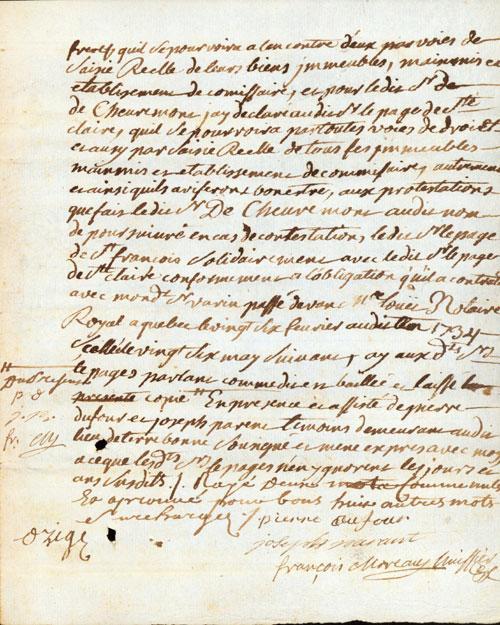 freres quil se pourvoira alencontre deux par voies de
Saisie Reelle de leurs biens immeubles, mainmis et
etablisement de comissaires et pour ledit Sr. De
de Cheuremont jay declaré audit Sr. le page de Ste
claire, quil se pourvoira partoutes voies de droict
et aussy par Saisie Reelle de tous ses immeubles
mainmis et etablisement de commissaires, autrement
et ainsi quils aviseront bonestre, aux protestations
que fait ledit Sr. De Cheuremont audit nom
de poursuivre en cas de contestations, ledit Sr. le page
de St. françois Solidairement avec ledit Sr. le page
de Ste. claire conformement a lobligation quila contracté
avec mondt. Sr. varin passé devant Me. Notaire
Royal a quebec le vingt Six feuvrier audit an 1734
Scellé le vingt Six may Suivant, ay aux dts. Srs
le pages parlant comme dit est baillé et laissé
presente copie En presence et assisté de pierre
dufour et joseph parent temoins demeurant audit
lieu de terrebonne Soungne et mené expres avec moy
a ce que lesds. Srs. le pages nen ygnorent les jours et
ans Susdits Rayé mots comme nuls
Et aprouvé pour bons huit autres mots
pierre dufour
joseph parent
françois Moreau huissier